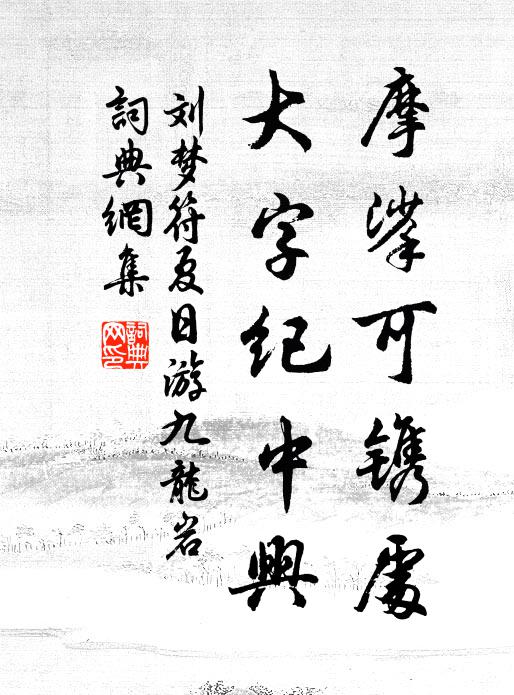 摩挲可镌處
大字纪中興
刘梦符夏日游九龍岩
詞典網集
詞典网印